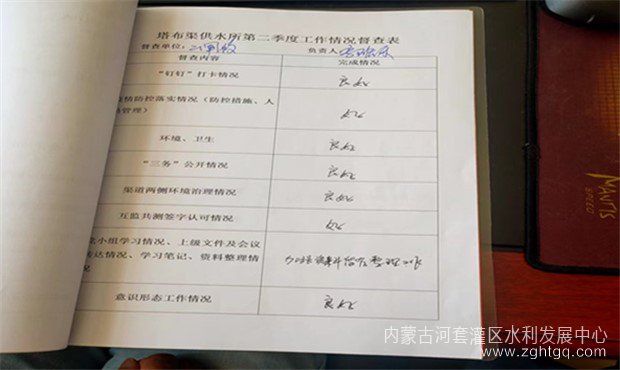 塔布渠供水所第二季度工作情况督查表
督查单位：
负责人
督查内容 完成情况
“钉钉”打卡情况 良好
情防控落实情况（防控措施、人
管理） 好
环境、卫生 良好
“三务”公开情况 良好
渠道两侧环境治理情况 良好
互监共测签字认可情况 好
小组学习情况、上级文件及会议
达情况、学习笔记、资料整理情
况
意识形态工作情况 良好
MANTIS
SPEED
内蒙古河套灌区水利发展中心
www.zghtgq.com